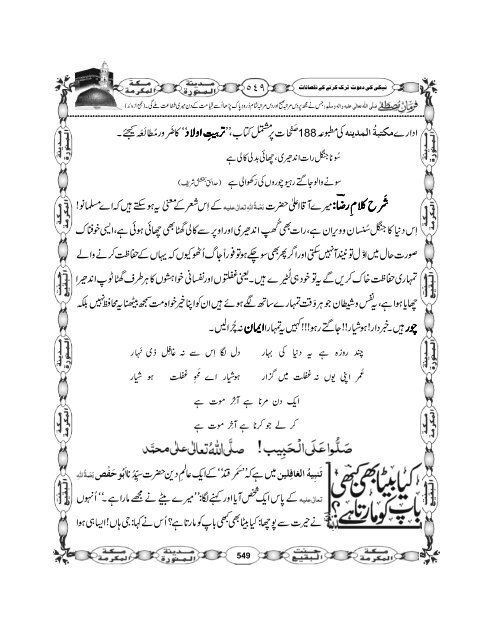 نیکی کی دعوت ترک کرنے کے نقصانات
۵۴۹
مدینۃ المنورۃ
مکۃ المکرمۃ
فرمانِ مصطفٰے صلی اللہ تعالیٰ علیہ واٰلہ وسلم: جس نے مجھ پر دس مرتبہ صبح اور دس مرتبہ شام درود پاک پڑھا اُسے قیامت کے دن میری شفاعت ملے گی۔ (مجمع الزوائد)
ادارے مکتبۃ المدینہ کی مطبوعہ 188 صفحات پر مشتمل کتاب، ’’تربیتِ اولاد‘‘ کا ضرور مطالَعہ کیجئے۔
سُونا جنگل رات اندھیری، چھائی بدلی کالی ہے
سونے والو جاگتے رہیو چوروں کی رَکھوالی ہے (حدائقِ بخشش شریف)
شَرحِ کلامِ رضا: میرے آقا اعلیٰ حضرت رحمۃ اللہ تعالیٰ علیہ کے اِس شعر کے معنیٰ یہ ہو سکتے ہیں کہ اے مسلمانو!
اِس دنیا کا جنگل سُنسان و ویران ہے، رات بھی گُھپ اندھیری اور اوپر سے کالی گھٹا بھی چھائی ہوئی ہے، ایسی خوفناک
صورتِ حال میں اوّل تو نیند آ نہیں سکتی اور اگر پھر بھی سو چکے ہو تو فوراً جاگ اُٹھو کیوں کہ یہاں کے حفاظت کرنے والے
تمہاری حفاظت خاک کریں گے یہ تو خود ہی لُٹیرے ہیں۔ یعنی غفلتوں اور نفسانی خواہشوں کا ہر طرف گھٹا ٹوپ اندھیرا
چھایا ہوا ہے، یہ نفس و شیطان جو ہر وَقت تمہارے ساتھ لگے ہوئے ہیں ان کو اپنا خیر خواہ مت سمجھ بیٹھنا یہ محافظ نہیں بلکہ
چور ہیں۔ خبردار! ہوشیار!! جاگتے رہو!!! کہیں یہ تمہارا ایمان نہ چُرا لیں۔
چند روزہ ہے یہ دنیا کی بہار دل لگا اِس سے نہ غافل ذی نہار
عُمر اپنی یوں نہ غفلت میں گزار ہوشیار اے محوِ غفلت ہو شیار
ایک دن مرنا ہے آخر موت ہے
کر لے جو کرنا ہے آخر موت ہے
صَلُّوا عَلَی الْحَبِیب! صلَّی اللہُ تعالیٰ علیٰ محمَّد
کیا بیٹا بھی کبھی باپ کو مارتا ہے؟
تنبیہُ الغافِلین میں ہے کہ ’’سَمَرقَند‘‘ کے ایک عالمِ دین حضرت سیِّدُنا ابو حَفص رحمۃ اللہ
تعالیٰ علیہ کے پاس ایک شخص آیا اور کہنے لگا: ’’میرے بیٹے نے مجھے مارا ہے۔‘‘ اُنہوں
نے حیرت سے پوچھا: کیا بیٹا بھی کبھی باپ کو مارتا ہے؟ اُس نے کہا: جی ہاں! ایسا ہی ہوا
مکۃ المکرمۃ
مدینۃ المنورۃ
549
جنت البقیع
مکۃ المکرمۃ